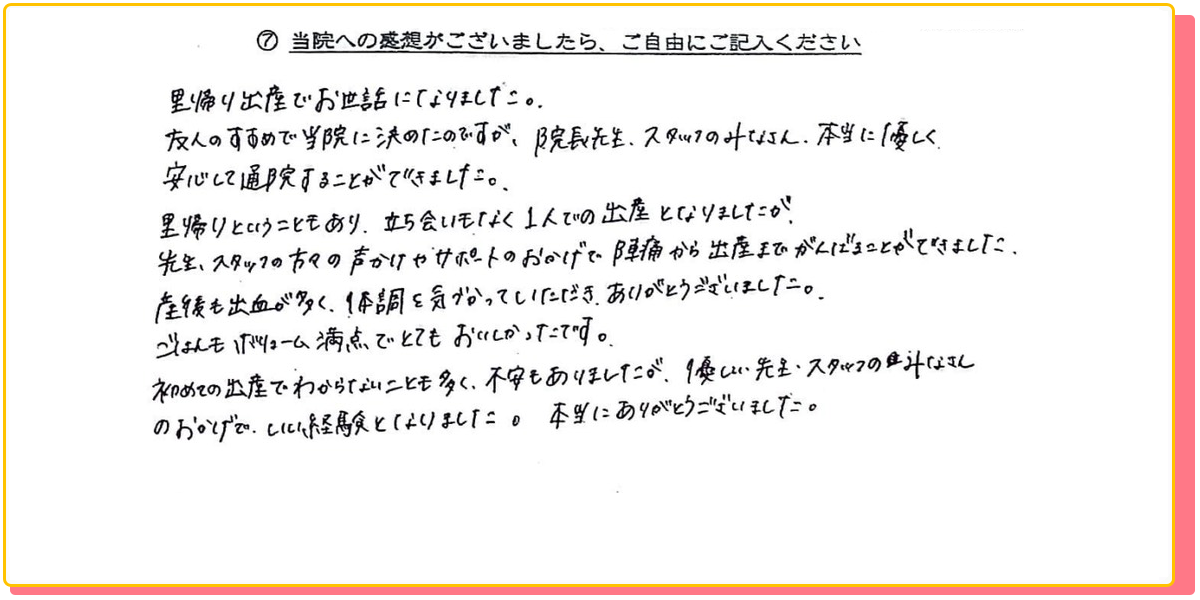 ⑦ 当院への感想がございましたら、ご自由にご記入ください
里帰り出産でお世話になりました。
友人のすすめで当院に決めたのですが、院長先生、スタッフのみなさん、本当に優しく
安心して通院することができました。
里帰りということもあり、立ち会いもなく1人での出産となりましたが、
先生、スタッフの方々の声かけやサポートのおかげで陣痛から出産までがんばることができました。
産後も出血が多く、体調を気づかっていただき、ありがとうございました。
ごはんもボリューム満点でとてもおいしかったです。
初めての出産でわからないことも多く、不安もありましたが、優しい先生・スタッフのみなさん
のおかげで、いい経験となりました。本当にありがとうございました。